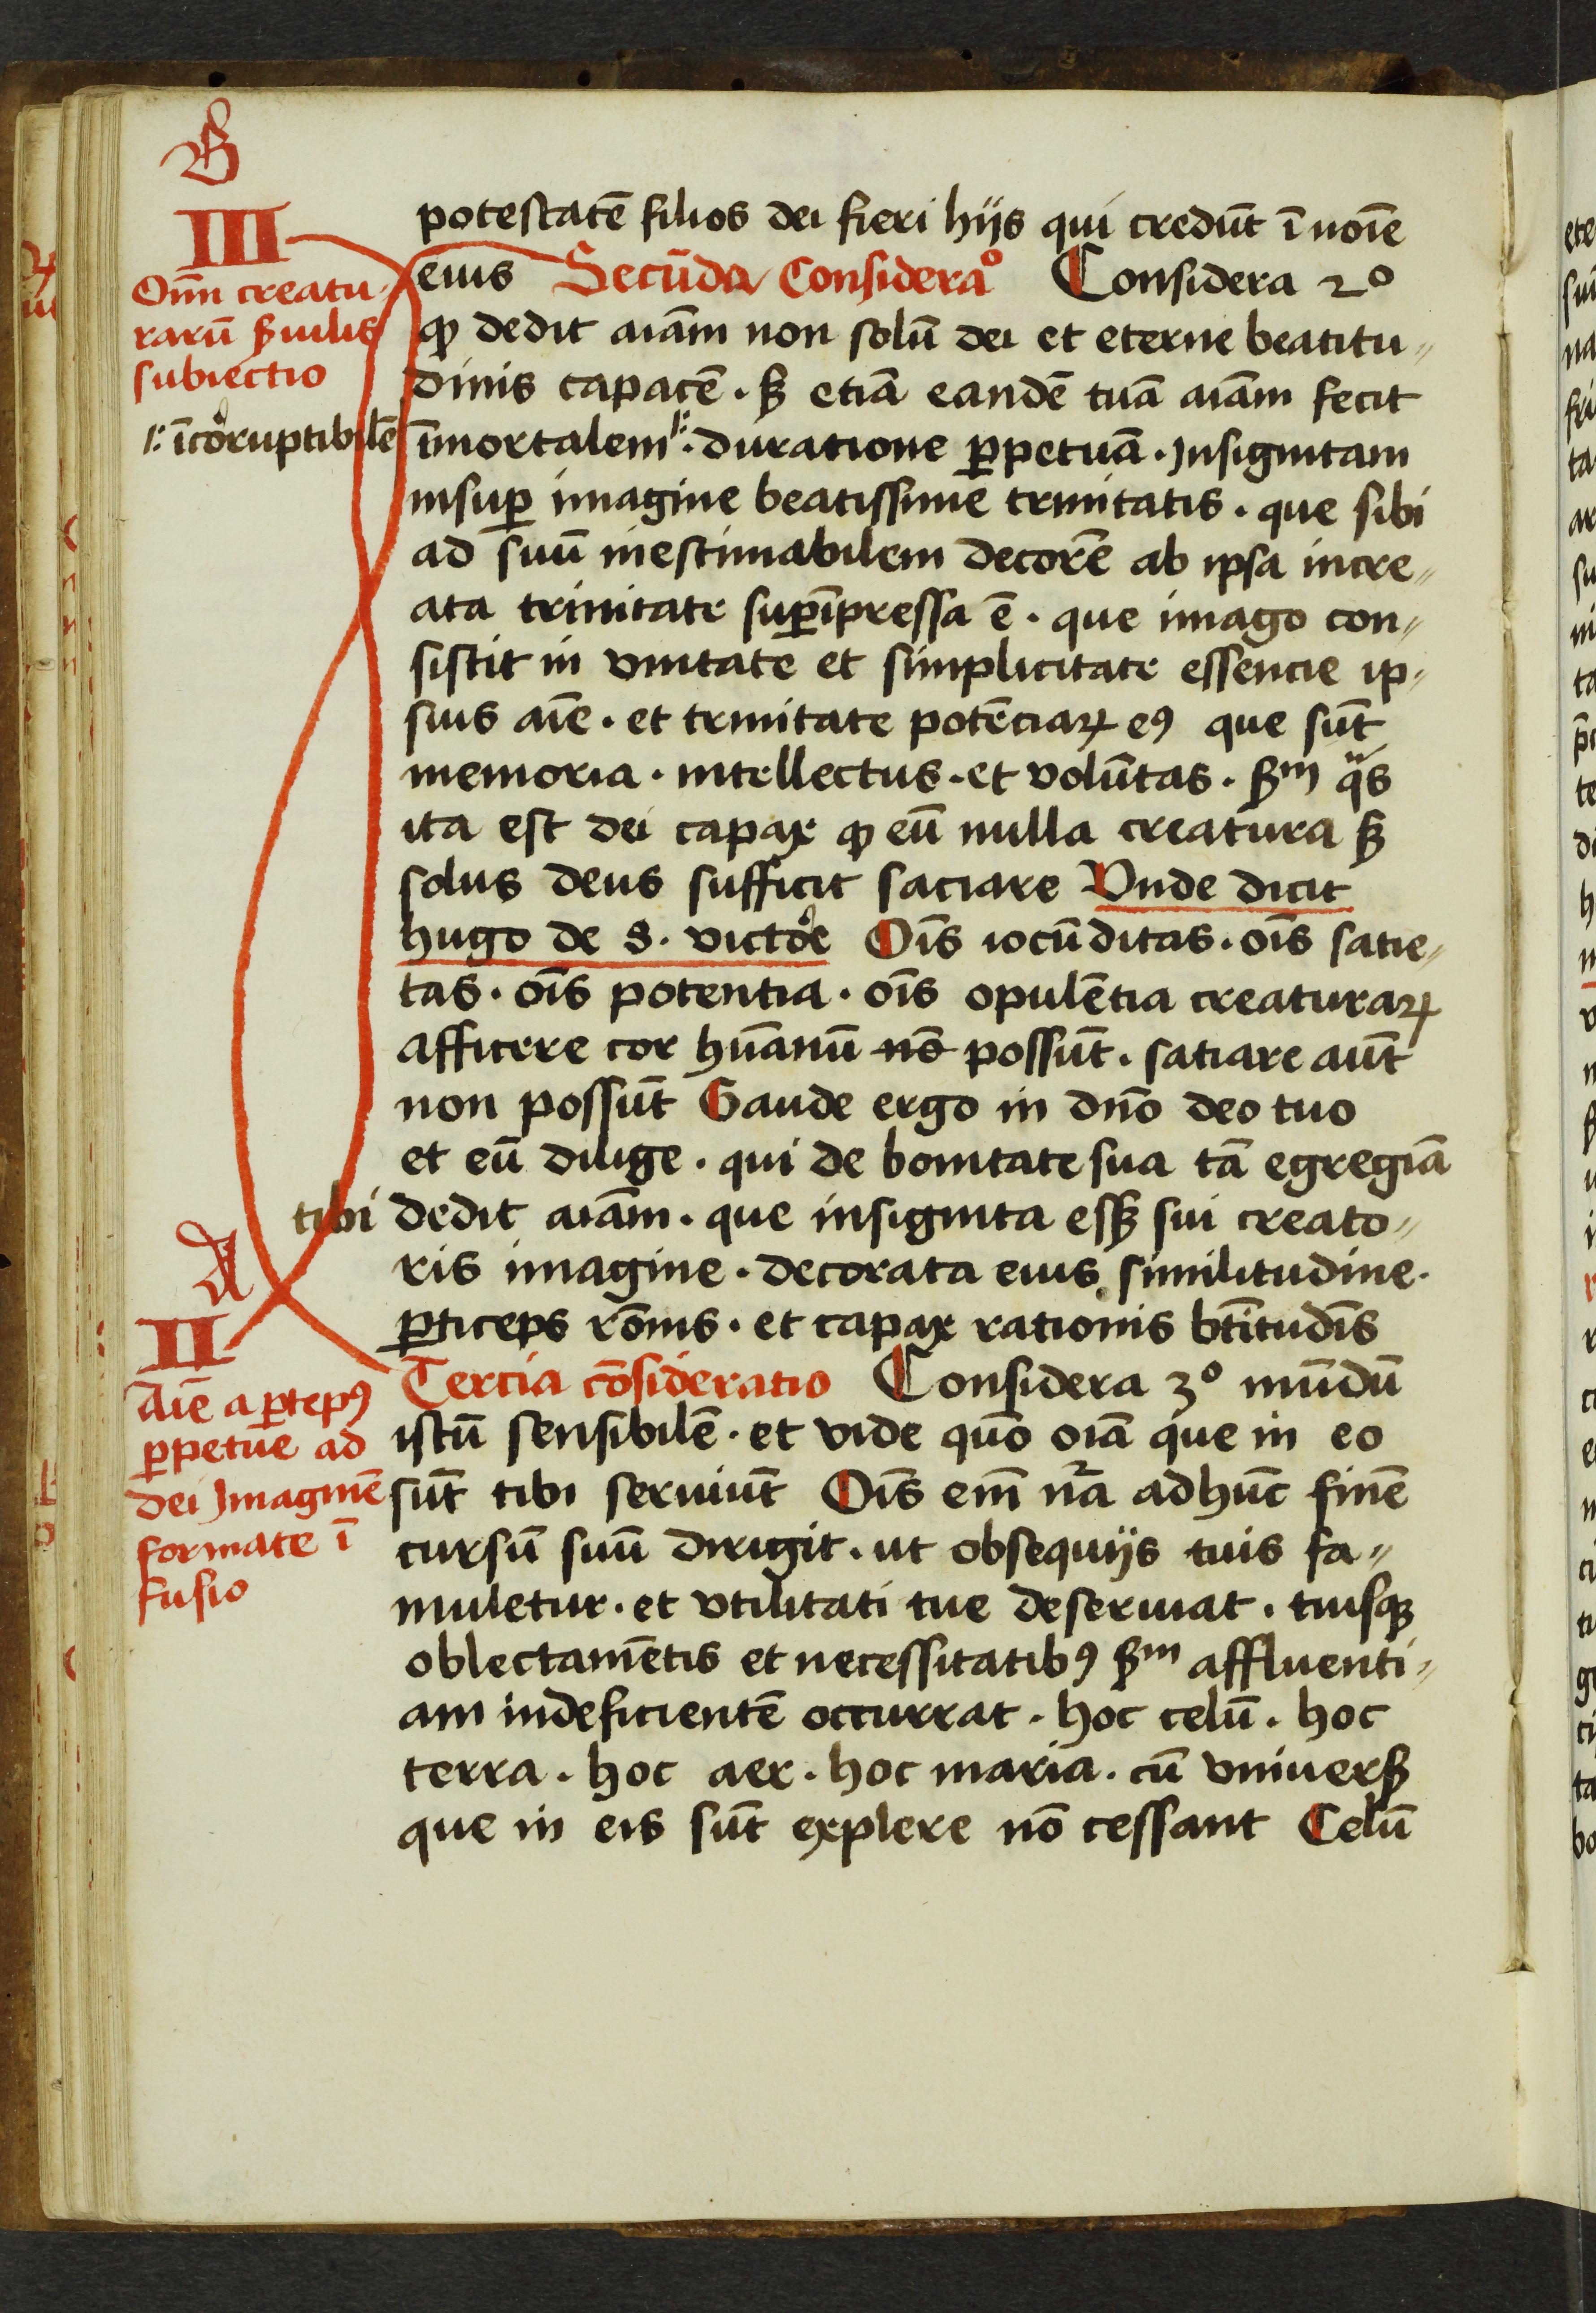 B
III
Om̄n creatu-
rarū ẜuilis
subiectio
/: īcōruptibilē
potestatē filios dei fieri hijs qui credūt ī noīe
eius Secūda Consideraᵒ Considera 2º
ꝙ dedit aīam non solū dei et eterne beatitu〃
dinis capacē · ẜ etiā eandē tuā aīam fecit
īmortalem /: · duratione ꝑpetuā · Insignitam
insuꝑ imagine beatissime trinitatis · que sibi
ad suū inestimabilem decorē ab ipsa incre〃
ata trinitate suꝑīpressa ē · que imago con〃
sistit in vnitate et simplicitate essencie ip〃
sius aīe · et trinitate potēciaꝝ eꝰ que sūt
memoria · intellectus · et volūtas · ẜm qᵃs
ita est dei capax ꝙ eū nulla creatura ẜ
solus deus sufficit saciare Vnde dicit
hugo de S. victoᵉ Oīs iocūditas · oīs satie〃
tas · oīs potentia · oīs opulētia creaturaꝝ
afficere cor hūanū nō possūt · satiare aūt
non possūt Gaude ergo in dn̄o deo tuo
et eū dilige · qui de bonitate sua tā egregiā
tibi dedit aīam · que insignita esß sui creato〃
ris imagine · decorata eius similitudine ·
ꝑticeps rōnis · et capax rationis bt̄itudīs
A
II
Aīe a ꝑtepꝰ
ꝑpetue ad
dei Imaginē
formate ī
fusio
Tercia cōsideratio Considera 3º mūdū
istū sensibilē · et vide quō oīa que in eo
sūt tibi seruiūt Oīs em̄ nᵃ̄ ad hūc finē
cursū suū dirigit · ut obsequijs tuis fa〃
muletur · et vtilitati tue deseruiat · tuisqꝫ
oblectamētis et necessitatibꝰ ẜm affluenti〃
am indeficientē occurrat · hoc celū · hoc
terra · hoc aer · hoc maria · cū vniuerß
que in eis sūt explere nō cessant Celū